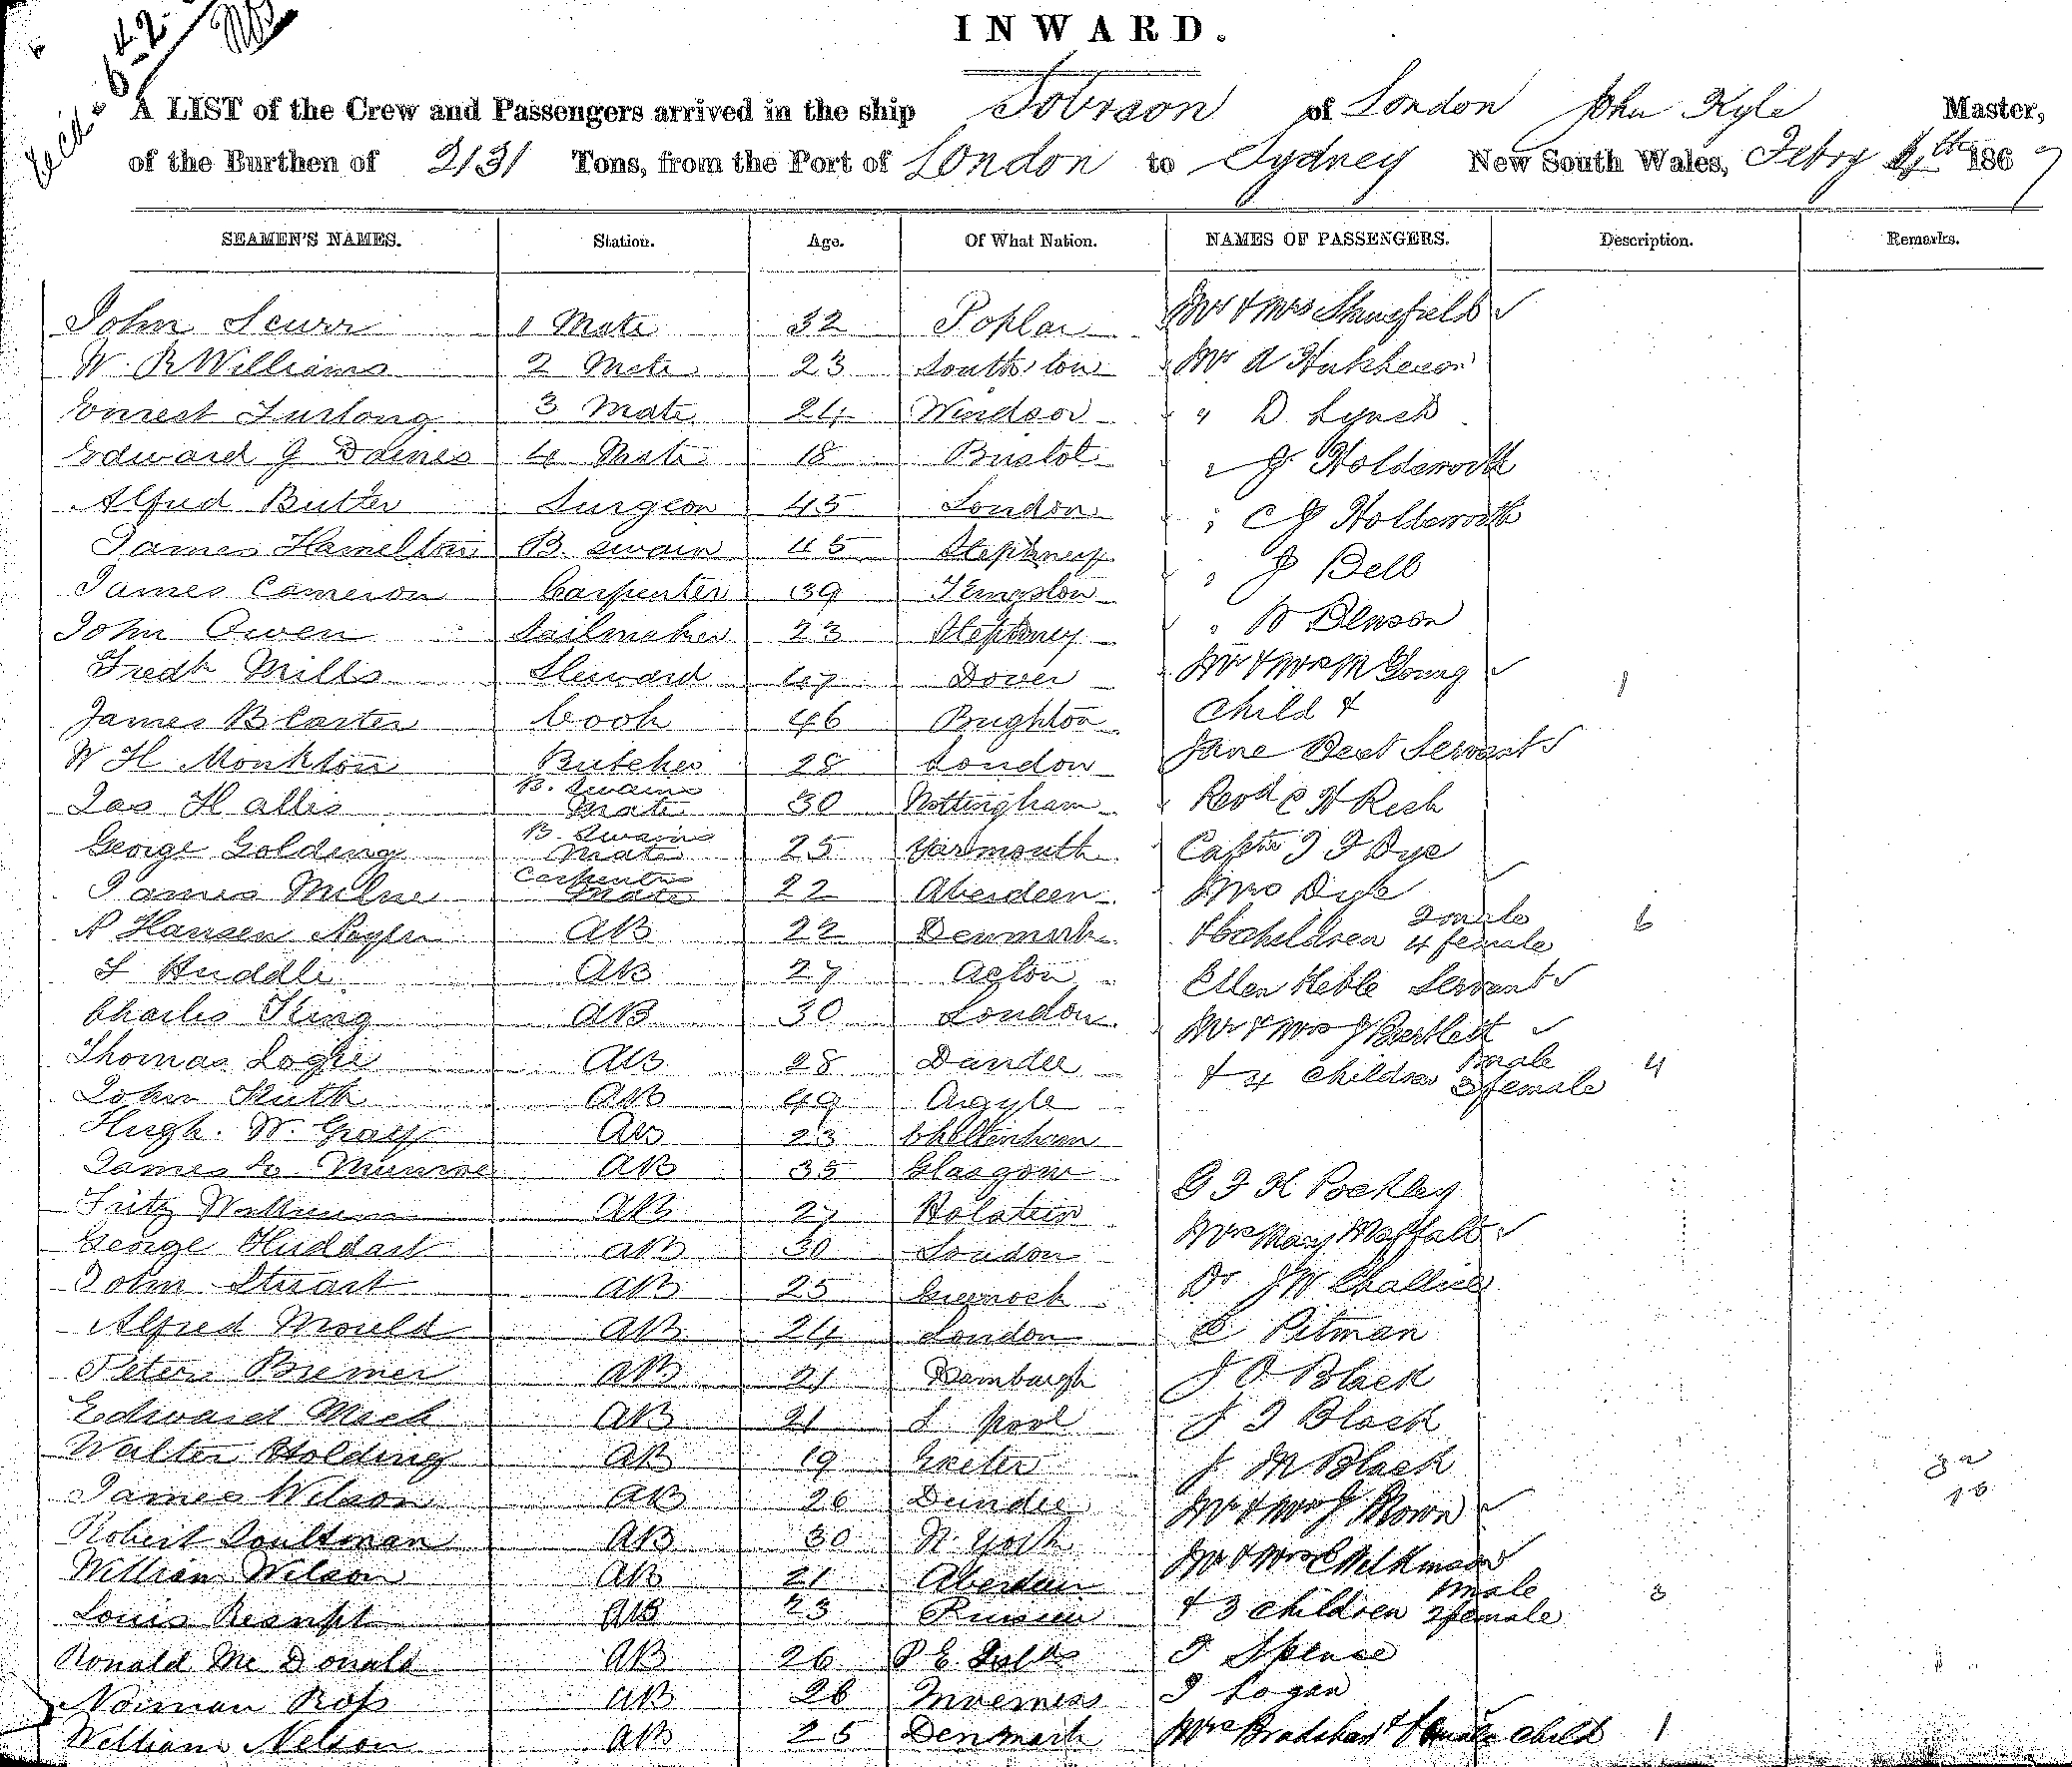 INWARD.
A LIST of the Crew and Passengers arrived in the ship Sobraon of London John Kyle Master,
of the Burthen of 2131 Tons, from the Port of London to Sydney New South Wales, Febry 4th 1867
SEAMEN'S NAMES. Station. Age. Of What Nation. NAMES OF PASSENGERS. Description. Remarks.
John Scurr 1 Mate 32 Poplar Mr & Mrs
W. R Williams 2 Mate 23 South'ton Mr A
Ernest Furlong 3 Mate 24 Windsor " D Lynch
Edward G Daines 4 Mate 18 Bristol " J Holdsworth
Alfred Butter Surgeon 45 London " C J Holdsworth
James Hamelton B. swain 45 Stephney " J Bell
James Cameron Carpenter 39 Kingston " W Benson
John Owen Sailmaker 23 Stephney Mr & Mrs M Young
Fredk Mills Steward 47 Dover Child & 1
James B Carter Cook 46 Brighton Jane Best Servant
W H Monkton Butcher 28 London Revd C H Rich
Jas H allis B. Swains Mate 30 Nottingham Captn J J Dye
George Golding B. Swains Mate 25 Yarmouth Mrs Dye
James Milne Carpenters Mate 22 Aberdeen & 6 children 2 male 4 female 6
P Hansen AB 22 Denmark Ellen Keble Servant
F Huddle AB 27 Acton Mr & Mrs J Bartlett
Charles King AB 30 London & 4 children 1 male 3 female 4
Thomas Logie AB 28 Dundee
John Keith AB 49 Argyle
Hugh. W. Gray AB 23 Cheltenham
James Munroe AB 35 Glasgow G F H Pockley
Fritz AB 27 Holstein Mrs Mary
George Huddart AB 30 London Dr J W Challice
John Stuart AB 25 Greenock E Pitman
Alfred Mould AB 24 London J O Black
Peter Bremer AB 21 J T Black
Edward Mick AB 21 L pool J M Black
Walter Holding AB 19 Exeter Mr & Mrs J Brown
James Wilson AB 26 Dundee Mr & Mrs C Wilkinson
Robert AB 30 N. York & 3 children 1 male 2 female 3
William Wilson AB 21 Aberdeen
Louis AB 23 Russia
Ronald Mc Donald AB 26 P E T Spence
Norman Ross AB 26 Inverness J Logan
William Nelson AB 25 Denmark Mrs Bradshaw & child 1